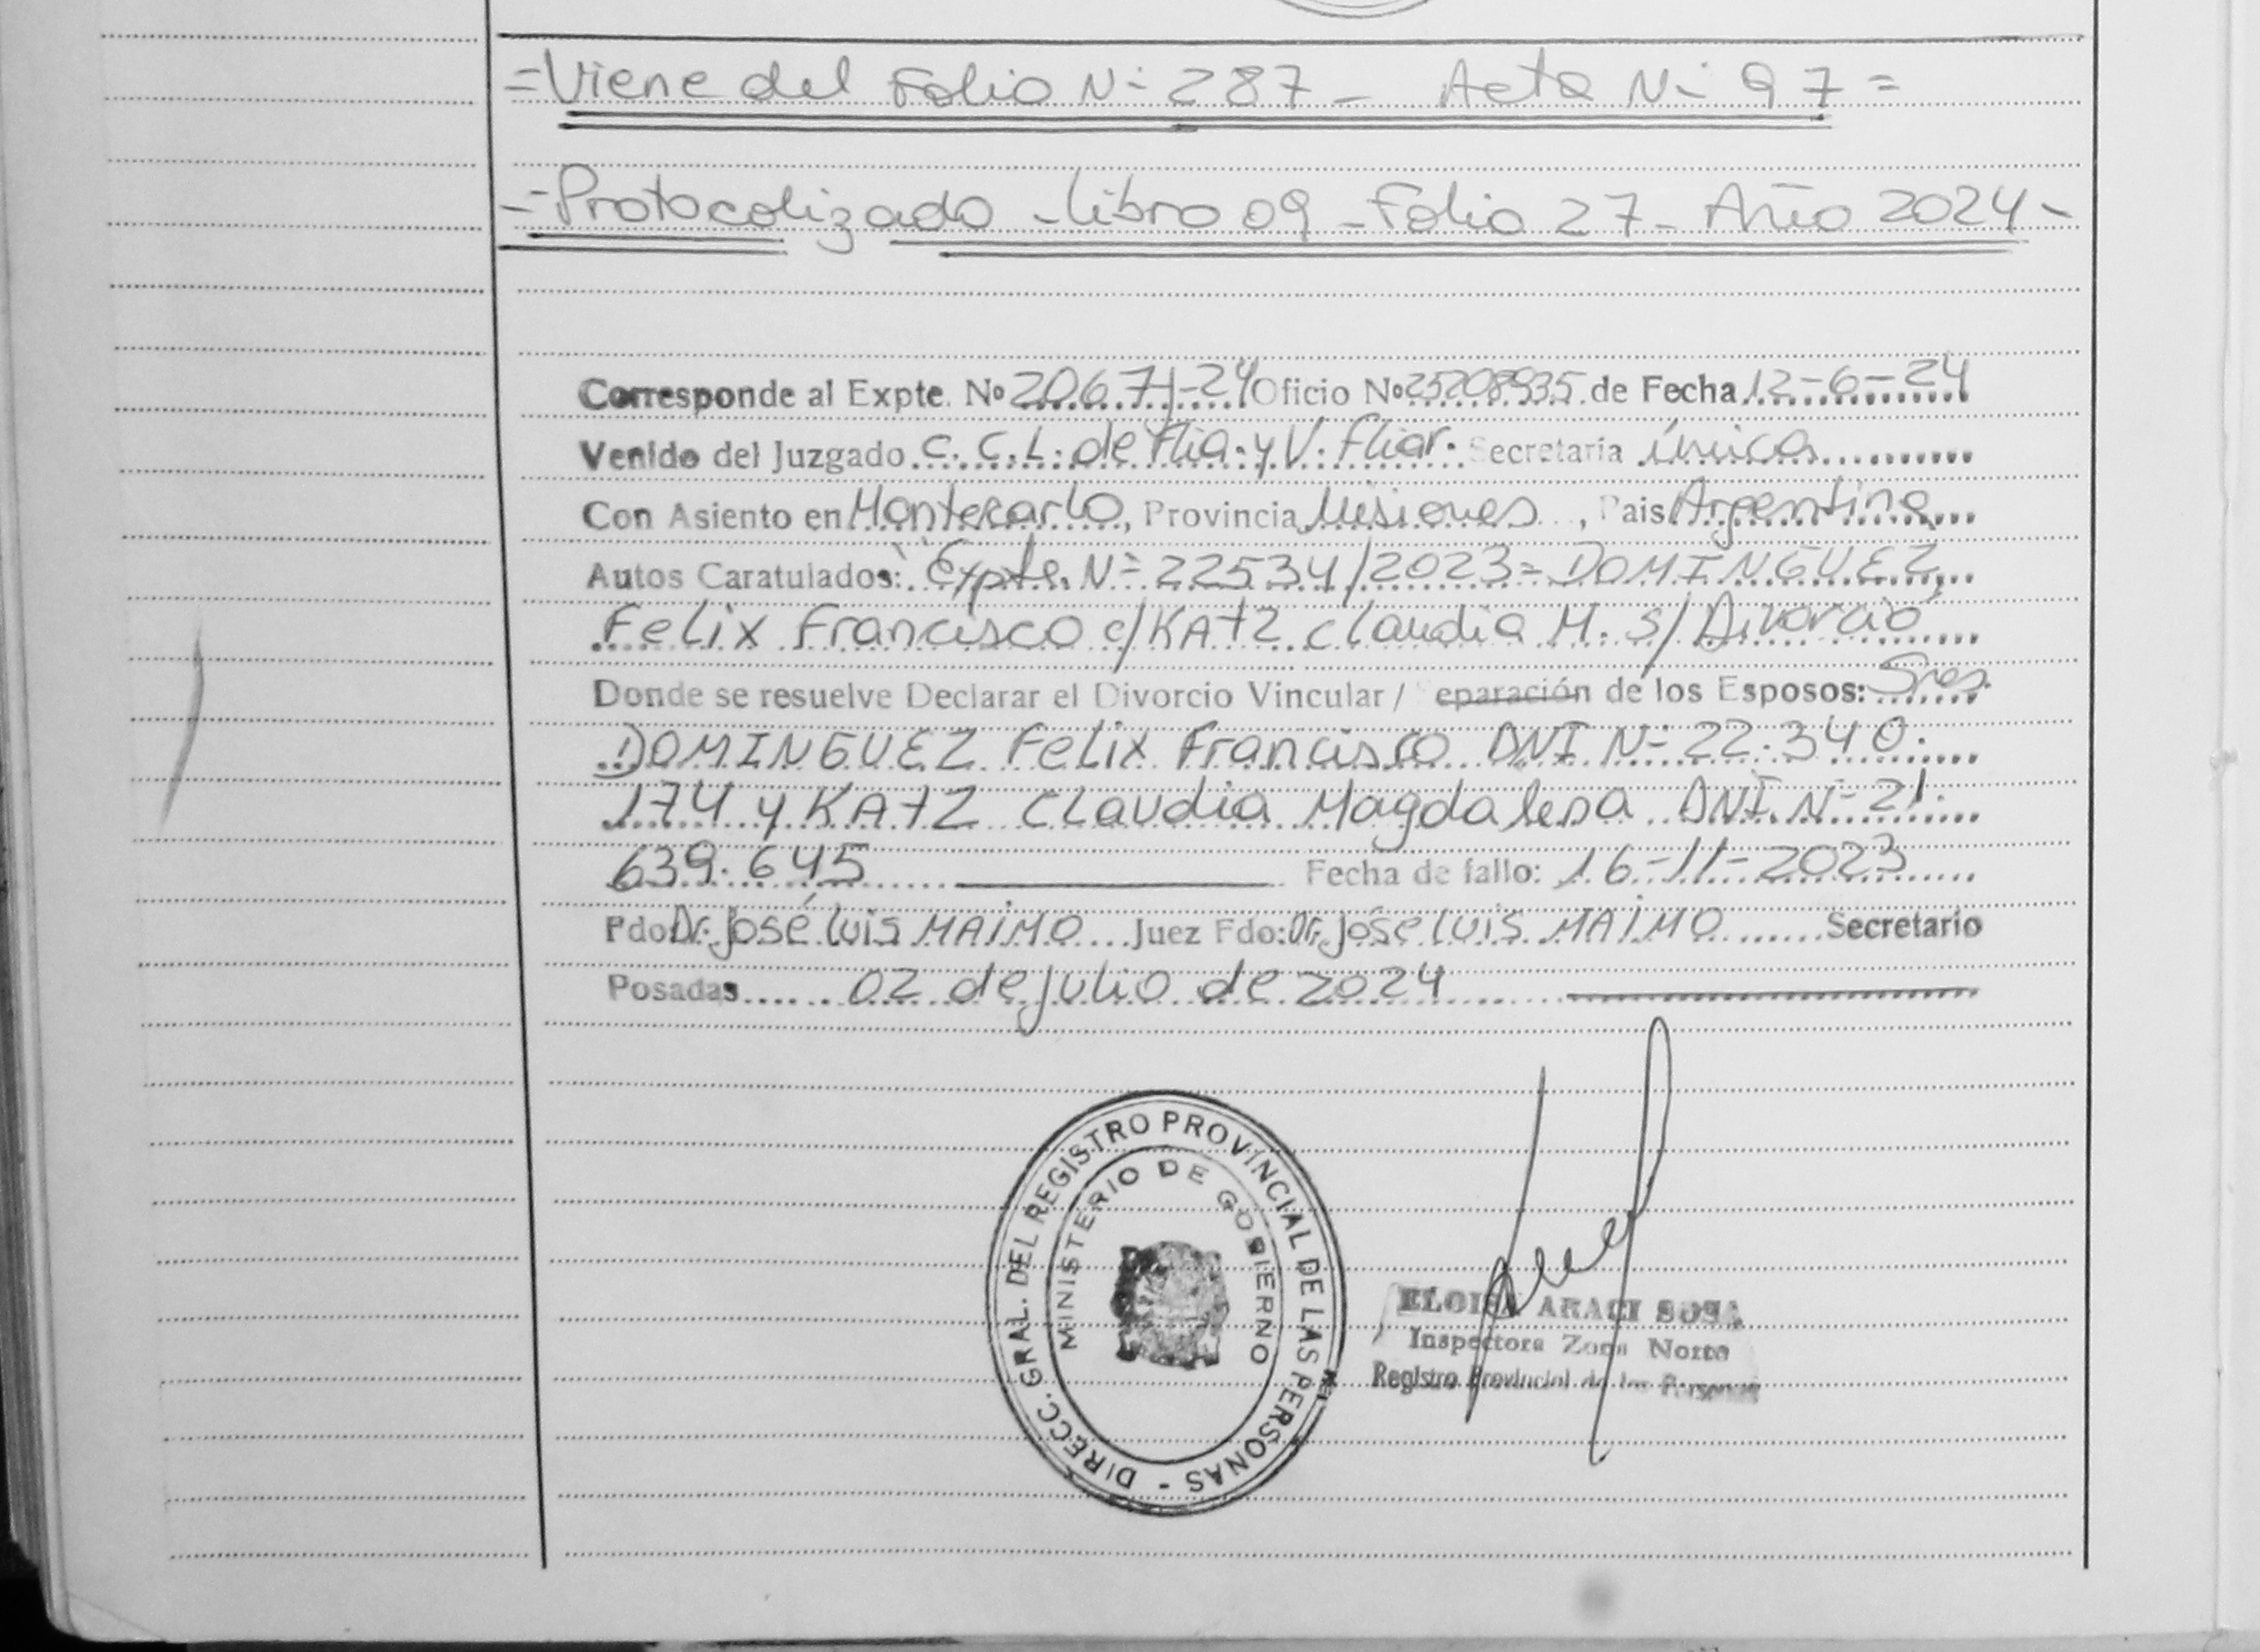 =Viene del Folio N- 287 - Acta N- 97=
=Protocolizado - Libro 09 - Folio 27 - Año 2024-
Corresponde al Expte. Nº 20671-24 Oficio Nº 25208935 de Fecha 12-6-24
Venido del Juzgado C. C. L. de Flia. y V. Fliar. Secretaria única
Con Asiento en Montecarlo, Provincia Misiones, Pais Argentina
Autos Caratulados: "Expte. N= 22534/2023= DOMINGUEZ,
Felix Francisco c/ KATZ Claudia M. s/ Divorcio
Donde se resuelve Declarar el Divorcio Vincular / eparación de los Esposos: Sres.
DOMINGUEZ Felix Francisco DNI N- 22.340.
174 y KATZ Claudia Magdalena DNI. N- 21.
639.645 Fecha de fallo: 16-11-2023
Fdo: Dr. José Luis MAIMO Juez Fdo: Dr. José Luis MAIMO Secretario
Posadas 02 de Julio de 2024
DIRECC. GRAL. DEL REGISTRO PROVINCIAL DE LAS PERSONAS -
MINISTERIO DE GOBIERNO
ELOISA ARACI SOSA
Inspectora Zona Norte
Registro Provincial de las Personas